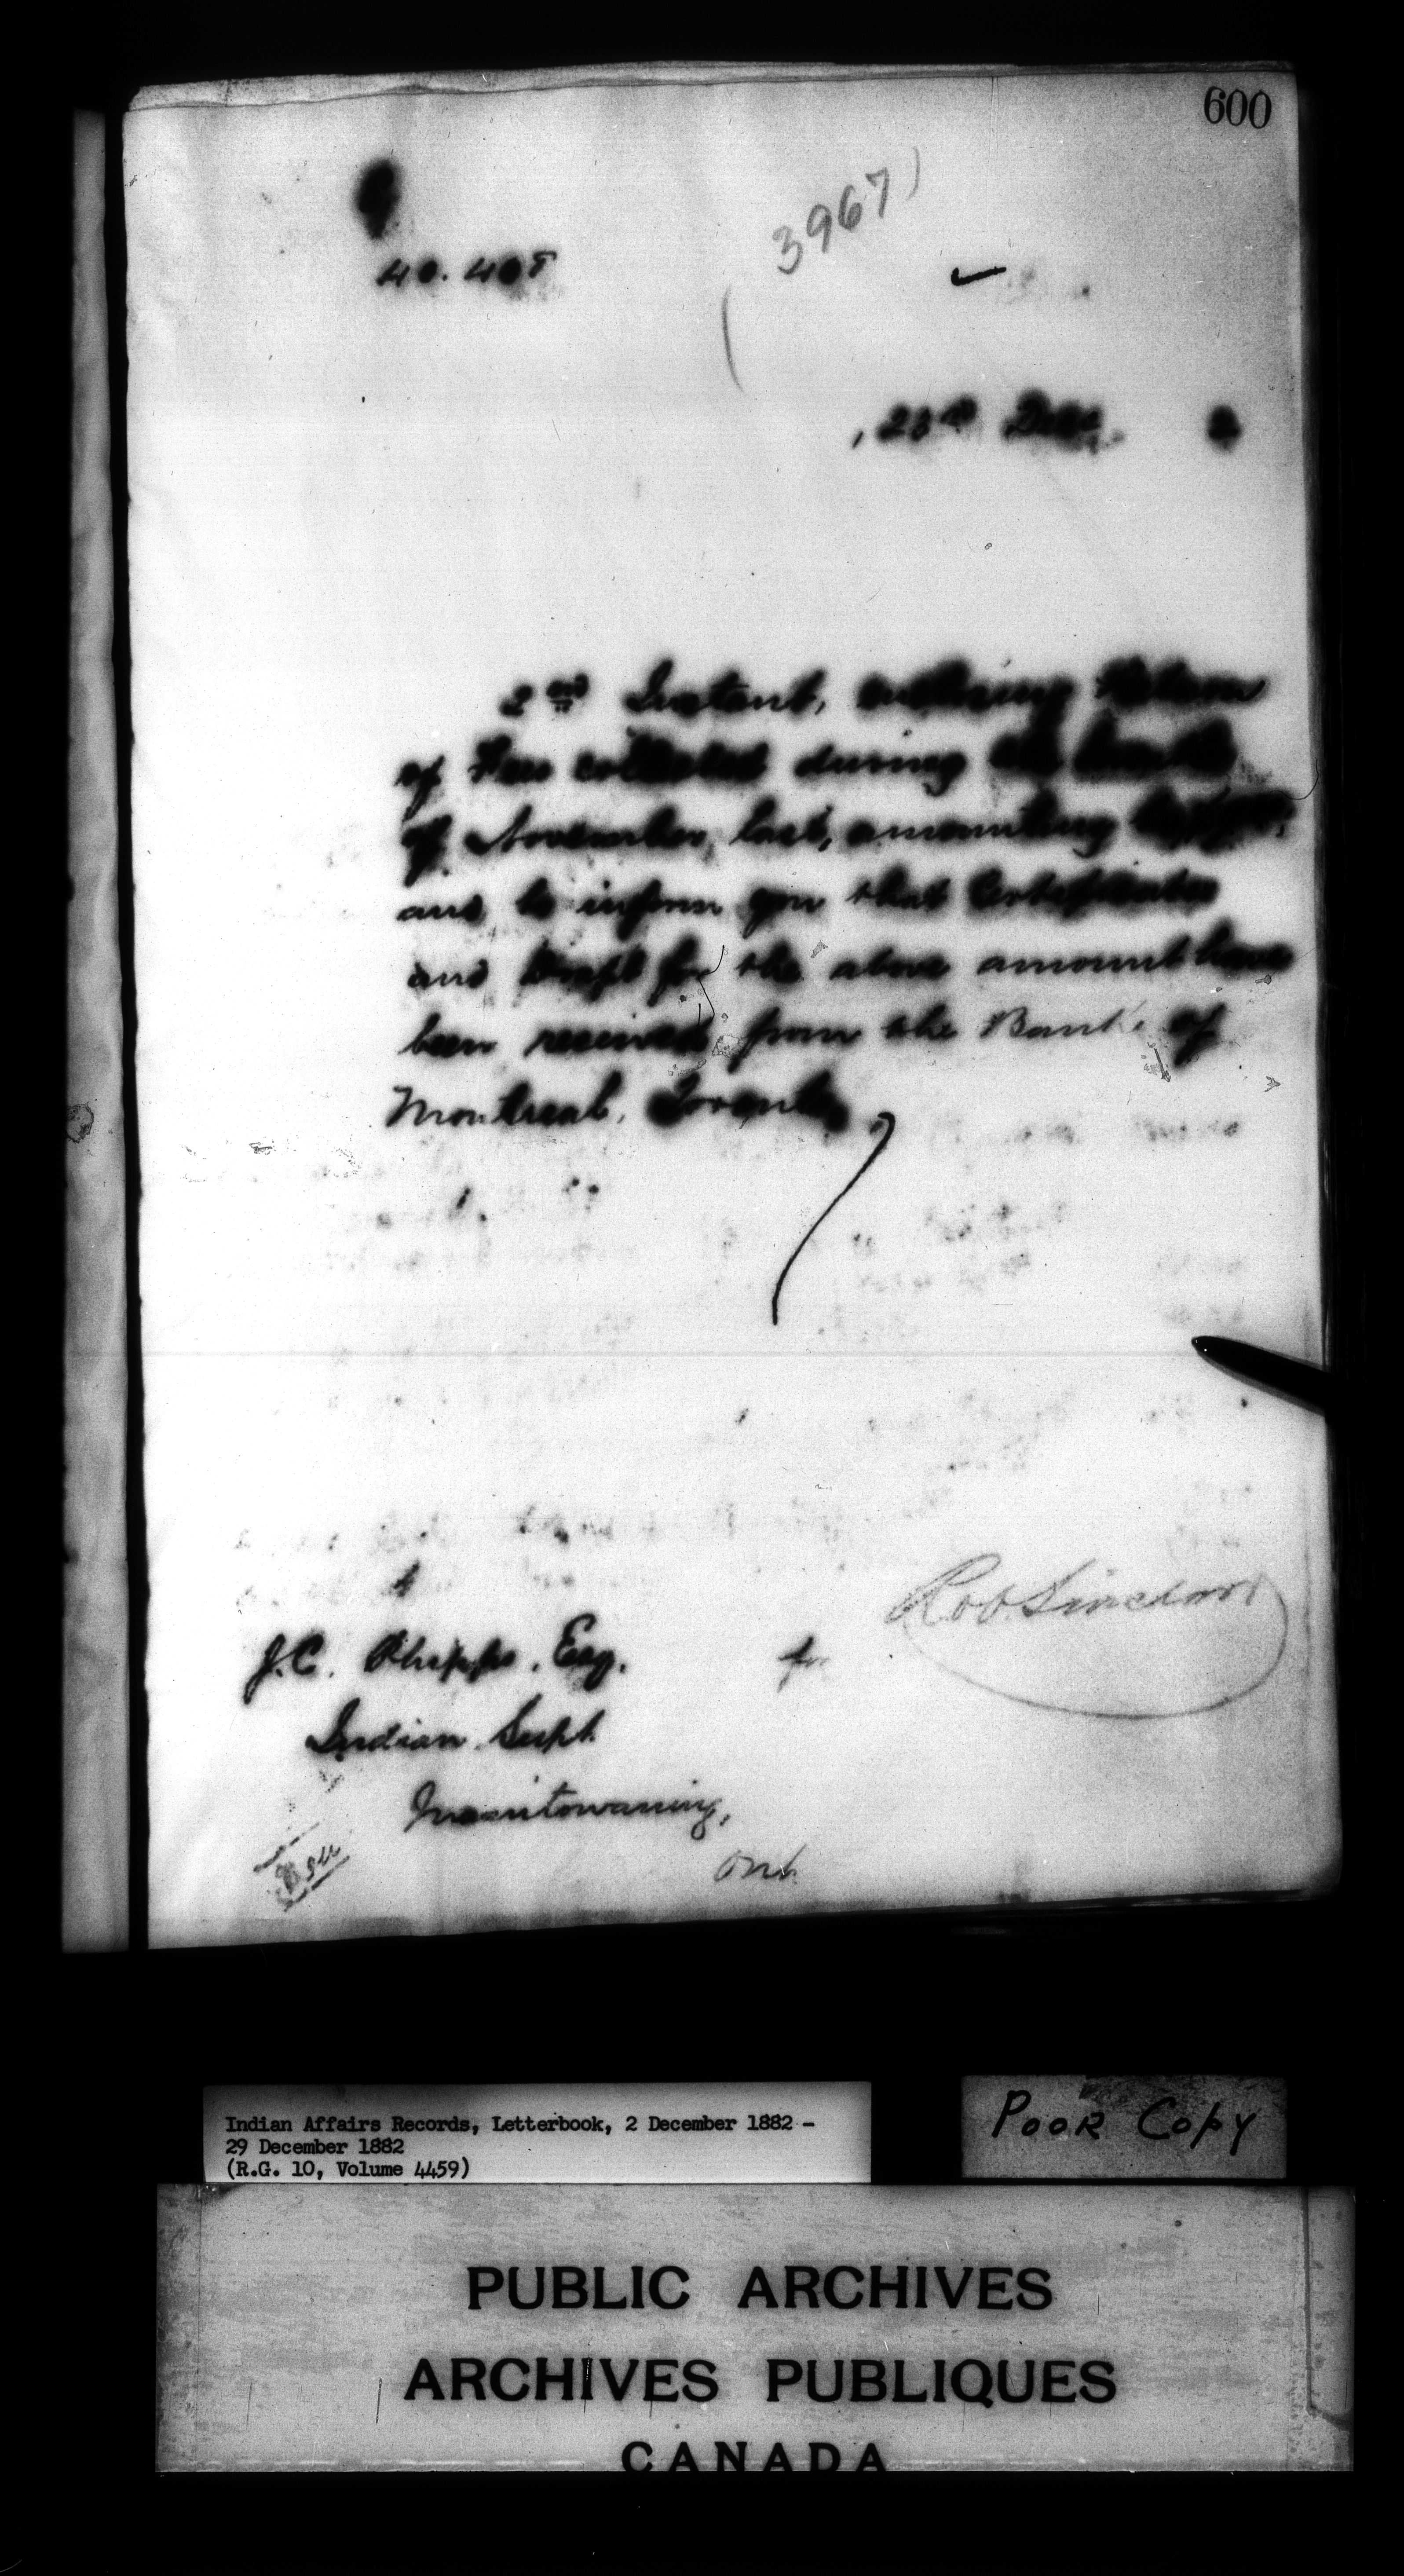 600
3967)
40.408
23rd Decr. 2
2nd Instant, enclosing Return
of Fees collected during the month
of November, last, amounting
and to inform you that Certificates
and Draft for the above amount have
been received from the Bank of
Montreal, Toronto
Rob Sinclair
J.C. Phipps. Esq. for
Indian Supt.
Manitowaning,
Ont.
Indian Affairs Records, Letterbook, 2 December 1882 -
29 December 1882
(R.G. 10, Volume 4459)
POOR COPY
PUBLIC ARCHIVES
ARCHIVES PUBLIQUES
CANADA